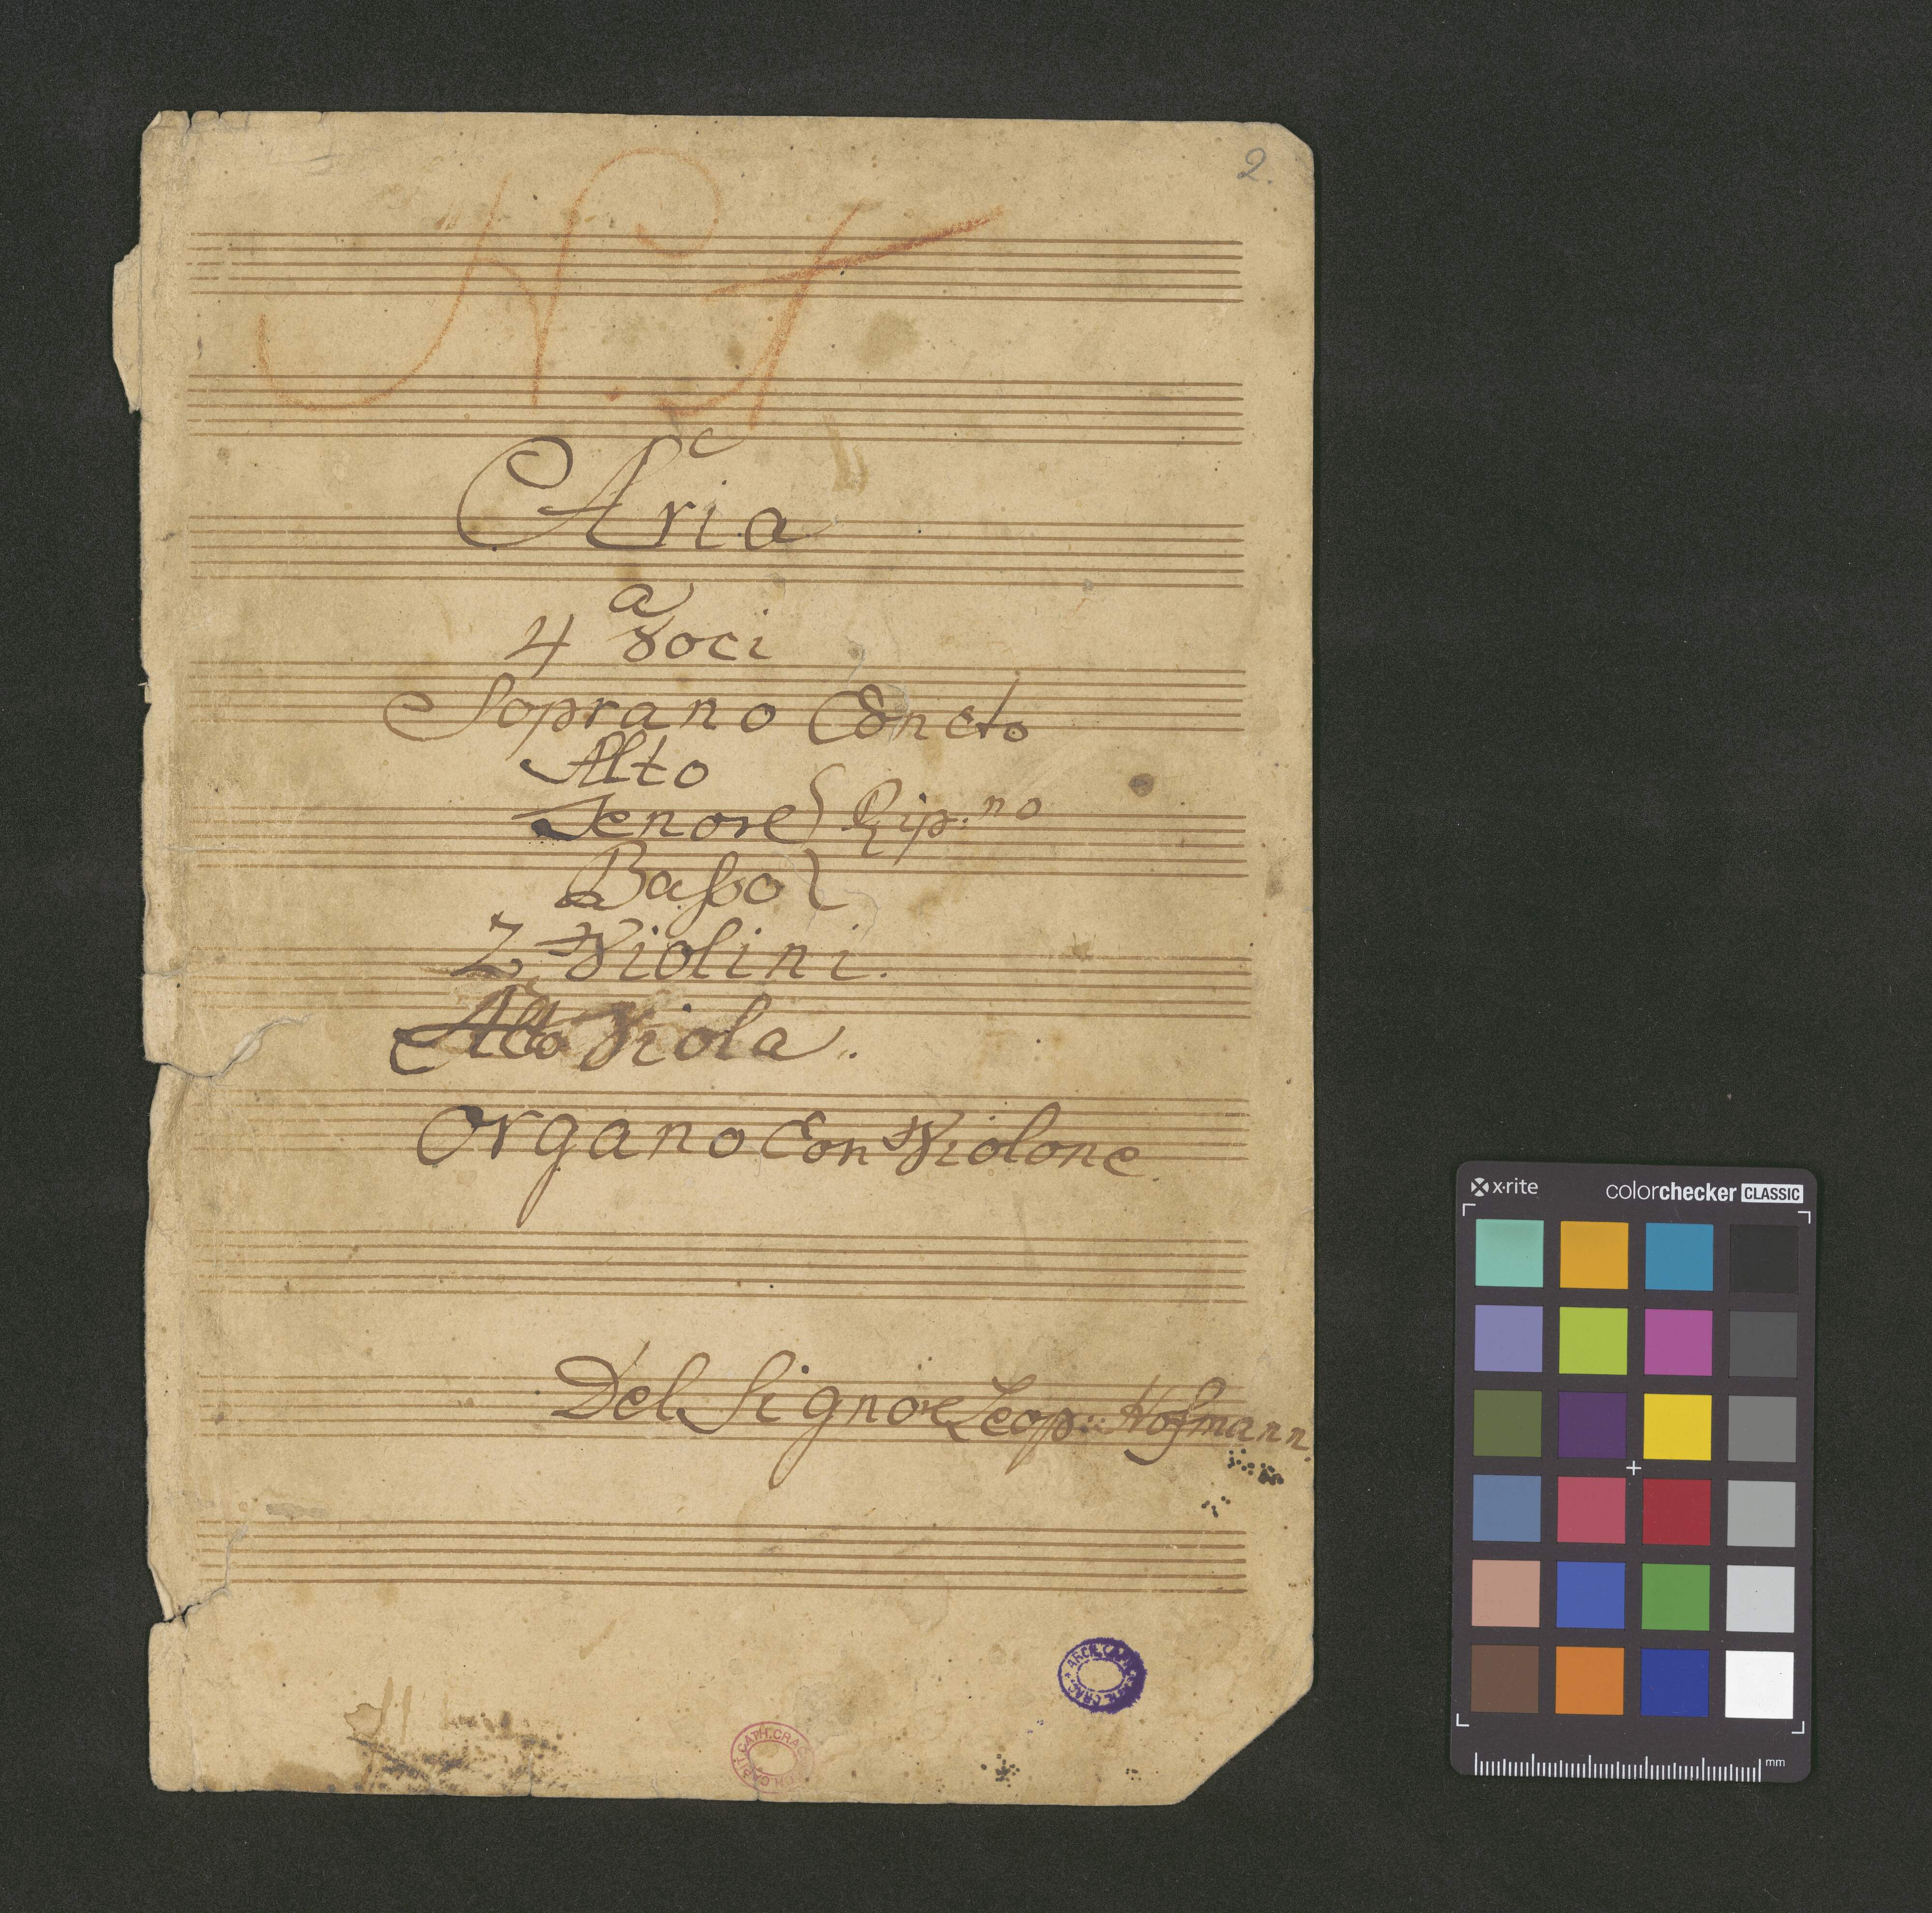 2.
N. 7
Aria
a
4 Voci
Soprano Concto
Alto
Tenore Rip:no
Basso
2 Violini.
Alto Viola.
Organo Con Violone.
Del Signore Leop: Hofmann.
ARCH. CAPIT. CATH. CRAC.
x·rite colorchecker CLASSIC
mm